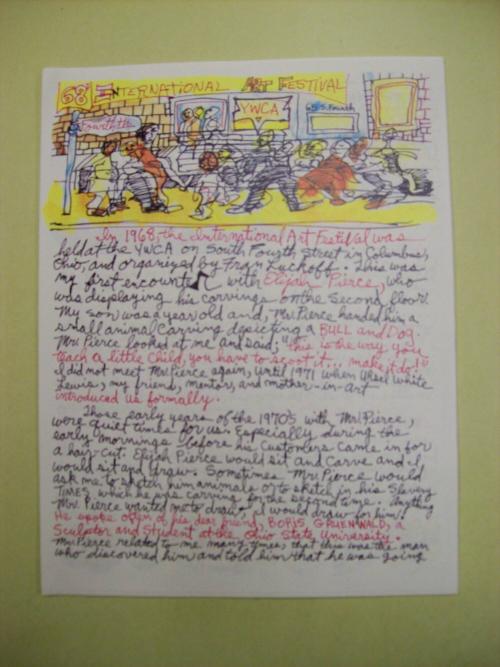 68 INTERNATIONAL ART FESTIVAL
YWCA
65 S. Fourth
Fourth St.
In 1968, the International Art Festival was
held at the YWCA on South Fourth Street in Columbus,
Ohio, and organized by Fran Luckoff. This was
my first encounter with Elijah Pierce, who
was displaying his carvings on the second floor.
My son was a year old and, Mr. Pierce handed him a
small animal carving depicting a BULL and Dog.
Mr. Pierce looked at me and said; "this is the way you
teach a little child, you have to scoot it... make it do!"
I did not meet Mr. Pierce again, until 1971 when Ursel White
Lewis, my friend, mentor, and mother-in-Art
introduced us formally.
Those early years of the 1970s with Mr. Pierce,
were quiet times for us. Especially during the
early mornings before his customers came in for
a hair-cut. Elijah Pierce would sit and carve and I
would sit and draw. Sometimes Mr. Pierce would
ask me to sketch him animals or to sketch in his Slavery
TIMES, which he was carving for the second time. Anything
Mr. Pierce wanted me to draw, I would draw for him!
He spoke often of his dear friend, BORIS GRUENWALD, a
Sculptor and Student at the Ohio State University.
Mr. Pierce related to me many times, that this was the man
who discovered him and told him that he was going